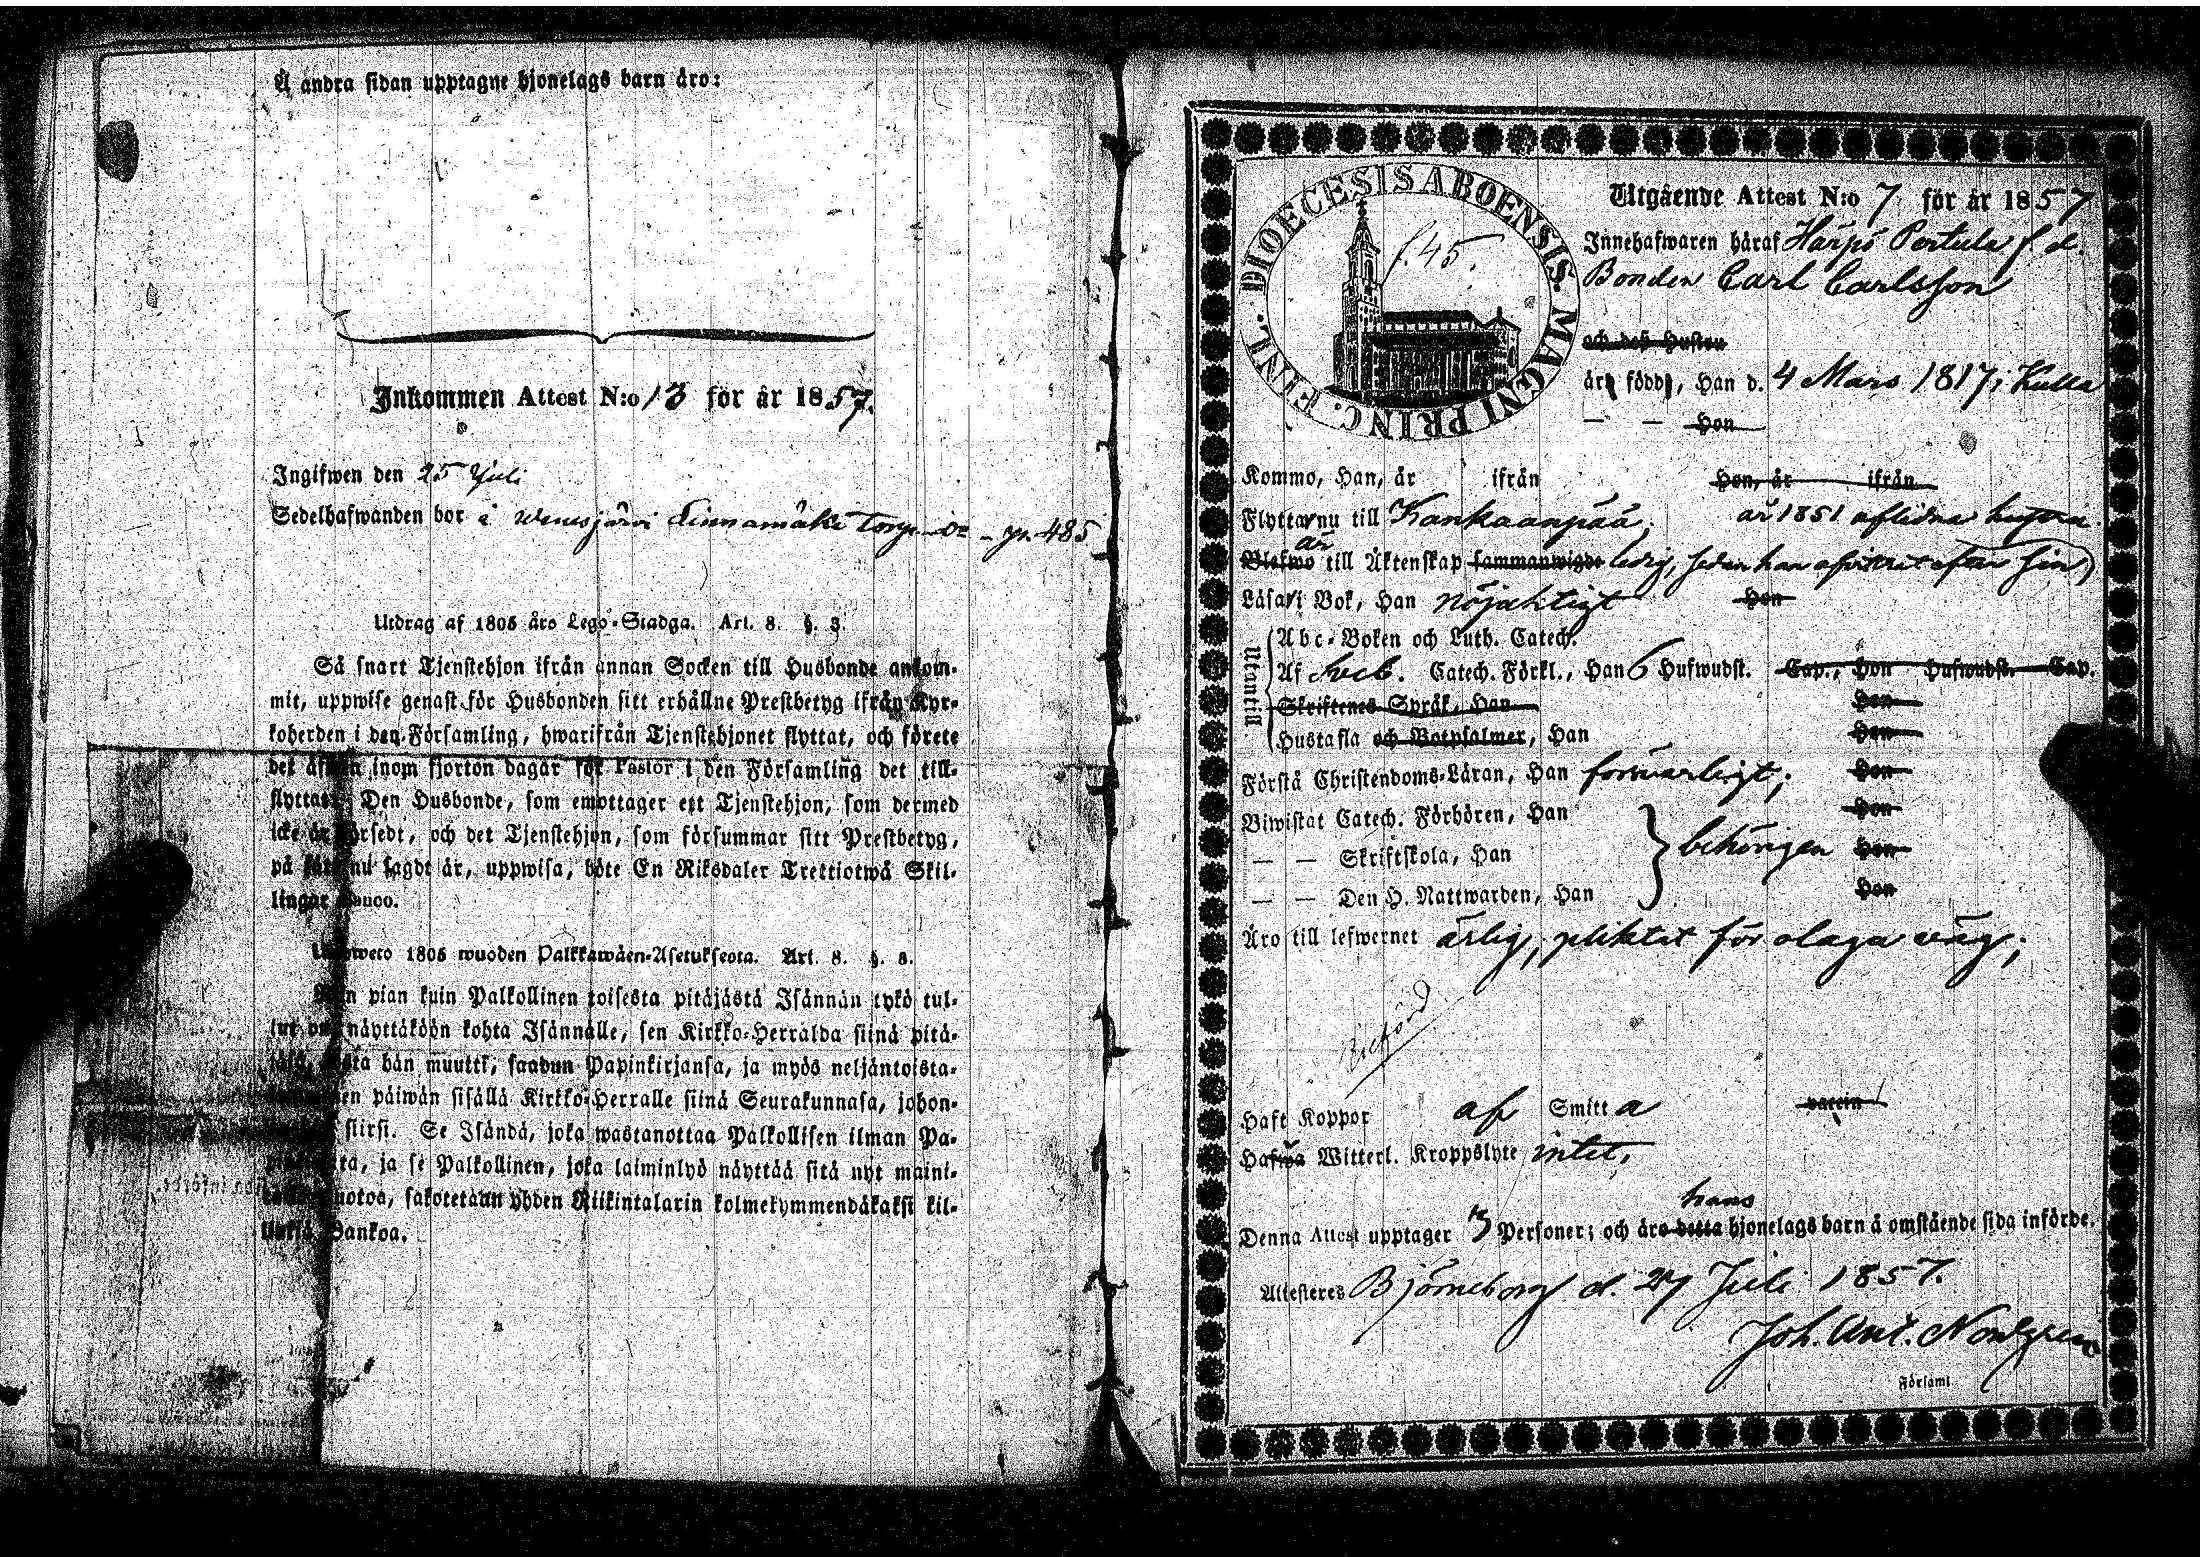 Å andra sidan upptagne hjonelags barn äro:
Inkommen Attest N:o 13 för år 1857.
Ingifwen den 25 Juli
Sedelhafwanden bor i Wenesjärvi Linnamäki Torp p. 485
Utdrag af 1805 års Lego-Stadga. Art. 8. §. 3.
Så snart Tjenstehjon ifrån annan Socken till Husbonde ankom-
mit, uppwise genast för Husbonden sitt erhållne Prestbetyg ifrån Kyr-
koherden i den Församling, hwarifrån Tjenstehjonet flyttat, och förete
det äfwen inom fjorton dagar för Pastor i den Församling det till-
flyttat. Den Husbonde, som emottager ett Tjenstehjon, som dermed
icke är försedt, och det Tjenstehjon, som försummar sitt Prestbetyg,
på sätt nu sagdt är, uppwisa, böte En Riksdaler Trettiotwå Skil-
lingar Banco.
1805 wuoden Palkkawäen-Asetuksesta. Art. 8. §. 3.
pian kuin Palkollinen toisesta pitäjästä Isännän tykö tul-
lut on, näyttäköön kohta Isännälle, sen Kirkko-Herralda siinä pitä-
jäsä, josta hän muutti, saadun Papinkirjansa, ja myös neljäntoista-
päiwän sisällä Kirkko-Herralle siinä Seurakunnasa, johon-
siirsi. Se Isändä, joka wastanottaa Palkollisen ilman Pa-
ta, ja se Palkollinen, joka laiminlyö näyttää sitä nyt maini-
uotoa, sakotetaan yhden Riikintalarin kolmekymmendäkaksi kil-
linkiä Bankoa.
DIOECESIS ABOENSIS. MAGNI PRINC. FINL.
f. 45.
Utgående Attest N:o 7 för år 1857
Innehafwaren häraf Härpö Pertula f. d.
Bonden Carl Carlsson
och deß Hustru
äro födde, Han d. 4 Mars 1817 i Kulla
— — Hon
Kommo, Han, år ifrån Hon, år ifrån
Flytta nu till Kankaanpää. år 1851 aflidna hustru.
är
Blefwo till Äktenskap sammanwigde ledig, sedan han afvittrat efter sin
Läsa i Bok, Han nöjaktigt Hon
Utantill
Abc-Boken och Luth. Catech.
Af Sveb. Catech. Förkl., Han 6 Hufwudst. Cap., Hon Hufwudst. Cap.
Skriftenes Språk, Han Hon
Hustafla och Botpsalmer, Han Hon
Förstå Christendoms-Läran, Han förswarligt; Hon
Biwistat Catech. Förhören, Han Hon
— — Skriftskola, Han behörigen Hon
— — Den H. Nattwarden, Han Hon
Äro till lefwernet ärlig, pliktat för olaga väg;
Haft Koppor af Smitta vaccin
Hafwa Witterl. Kroppslyte intet.
hans
Denna Attest upptager 3 Personer; och äro detta hjonelags barn å omstående sida införde.
Attesteres Björneborg d. 27 Juli 1857.
Joh. Ant. Nordgren
Församl